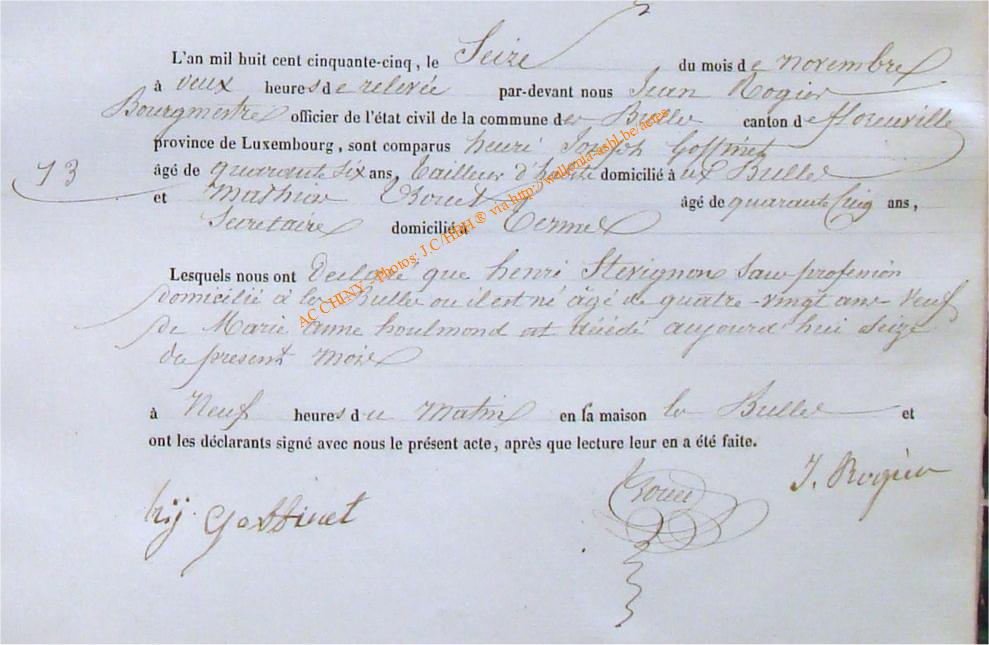 L'an mil huit cent cinquante-cinq, le Seize du mois de novembre
à deux heures de relevée par-devant nous Jean Rogier
Bourgmestre officier de l'état civil de la commune de Bulle canton de florenville
province de Luxembourg, sont comparus henri Joseph Goffinet
13
âgé de quarante six ans, tailleur d'habit domicilié à Bulle
et Mathieu âgé de quarante Cinq ans,
Secretaire domicilié à Termes
Lesquels nous ont déclaré que henri Stevignon Sans profession
domicilié à la Bulle ou il est né âgé de quatre-vingt ans Veuf
de Marie anne houlmond est décédé aujourd'hui seize
du présent mois
à Neuf heures du Matin en sa maison la Bulle et
ont les déclarants signé avec nous le présent acte, après que lecture leur en a été faite.
J. Rogier
hrij Goffinet
AC CHINY - Photos: J.C/HbH ® via http://wallonia-asbl.be/actes